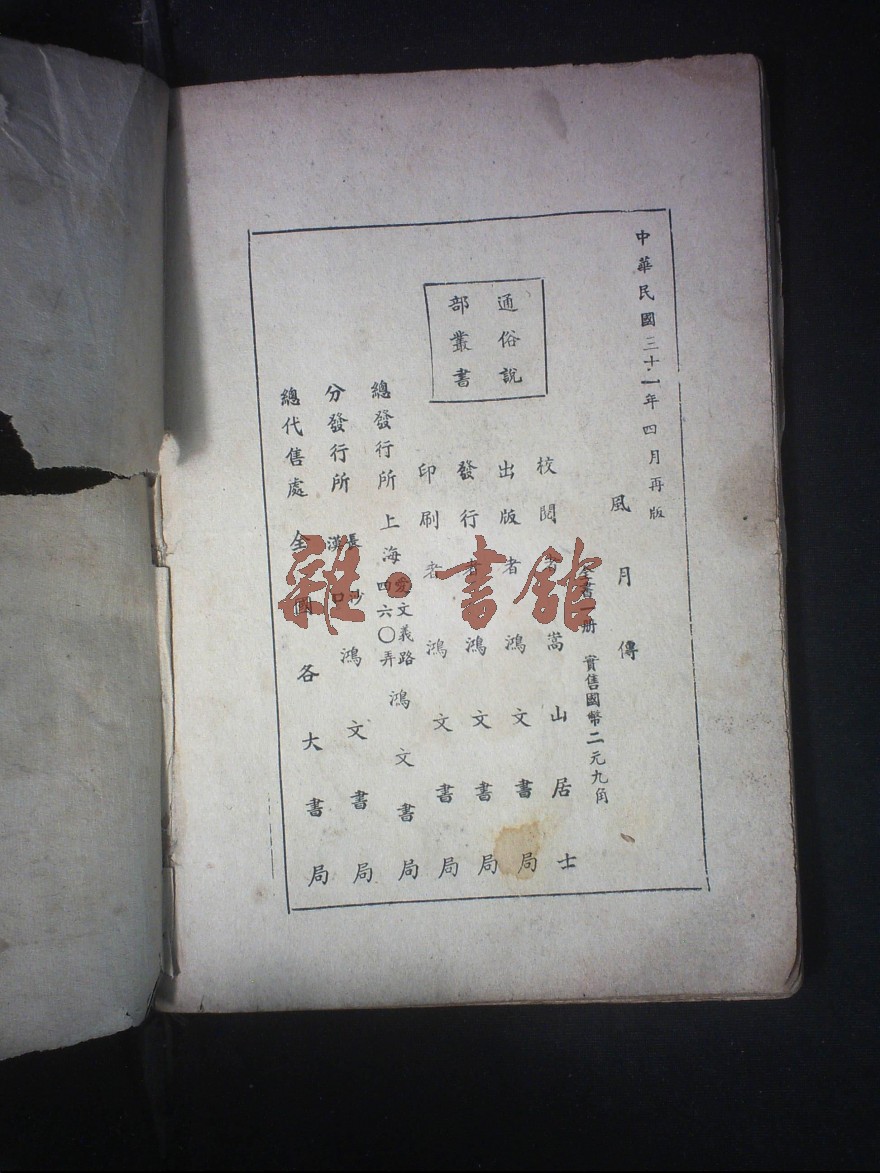 中華民國三十一年四月再版
風月傳
全書一册 實售國幣二元九角
通俗說
部叢書
校閱者 嵩山居士
出版者 鴻文書局
發行者 鴻文書局
印刷者 鴻文書局
總發行所 上海愛文義路四六〇弄 鴻文書局
分發行所 長沙漢口 鴻文書局
總代售處 全國各大書局
雜·書館